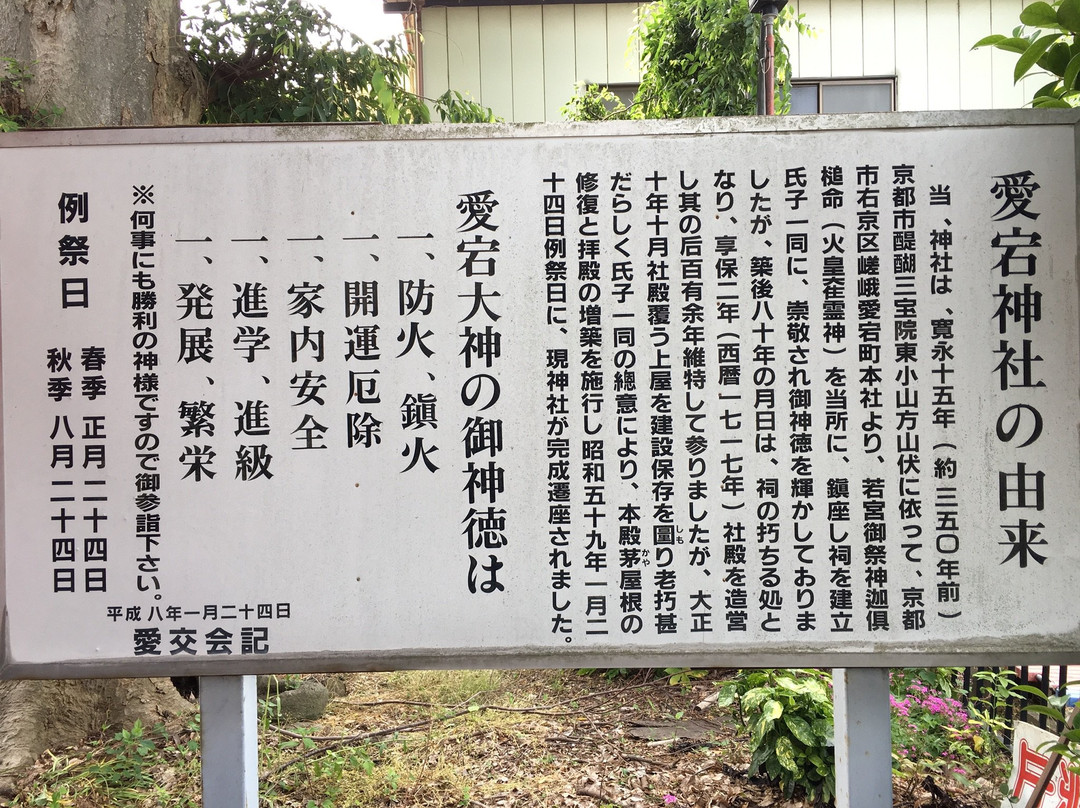 愛宕神社の由来
当、神社は、寛永十五年（約三五〇年前）
京都市醍醐三宝院東小山方山伏に依って、京都
市右京区嵯峨愛宕町本社より、若宮御祭神迦倶
槌命（火皇産霊神）を当所に、鎮座し祠を建立
氏子一同に、崇敬され御神徳を輝かしておりま
したが、築後八十年の月日は、祠の朽ちる処と
なり、享保二年（西暦一七一七年）社殿を造営
し其の后百有余年維特して参りましたが、大正
十年十月社殿覆う上屋を建設保存を圖り老朽甚
しも
だらしく氏子一同の總意により、本殿茅屋根の
かや
修復と拝殿の増築を施行し昭和五十九年一月二
十四日例祭日に、現神社が完成遷座されました。
愛宕大神の御神徳は
一、防火、鎭火
一、開運厄除
一、家内安全
一、進学、進級
一、発展、繁栄
※何事にも勝利の神様ですので御参詣下さい。
例祭日
春季 正月二十四日
秋季 八月二十四日
平成八年一月二十四日
愛交会記